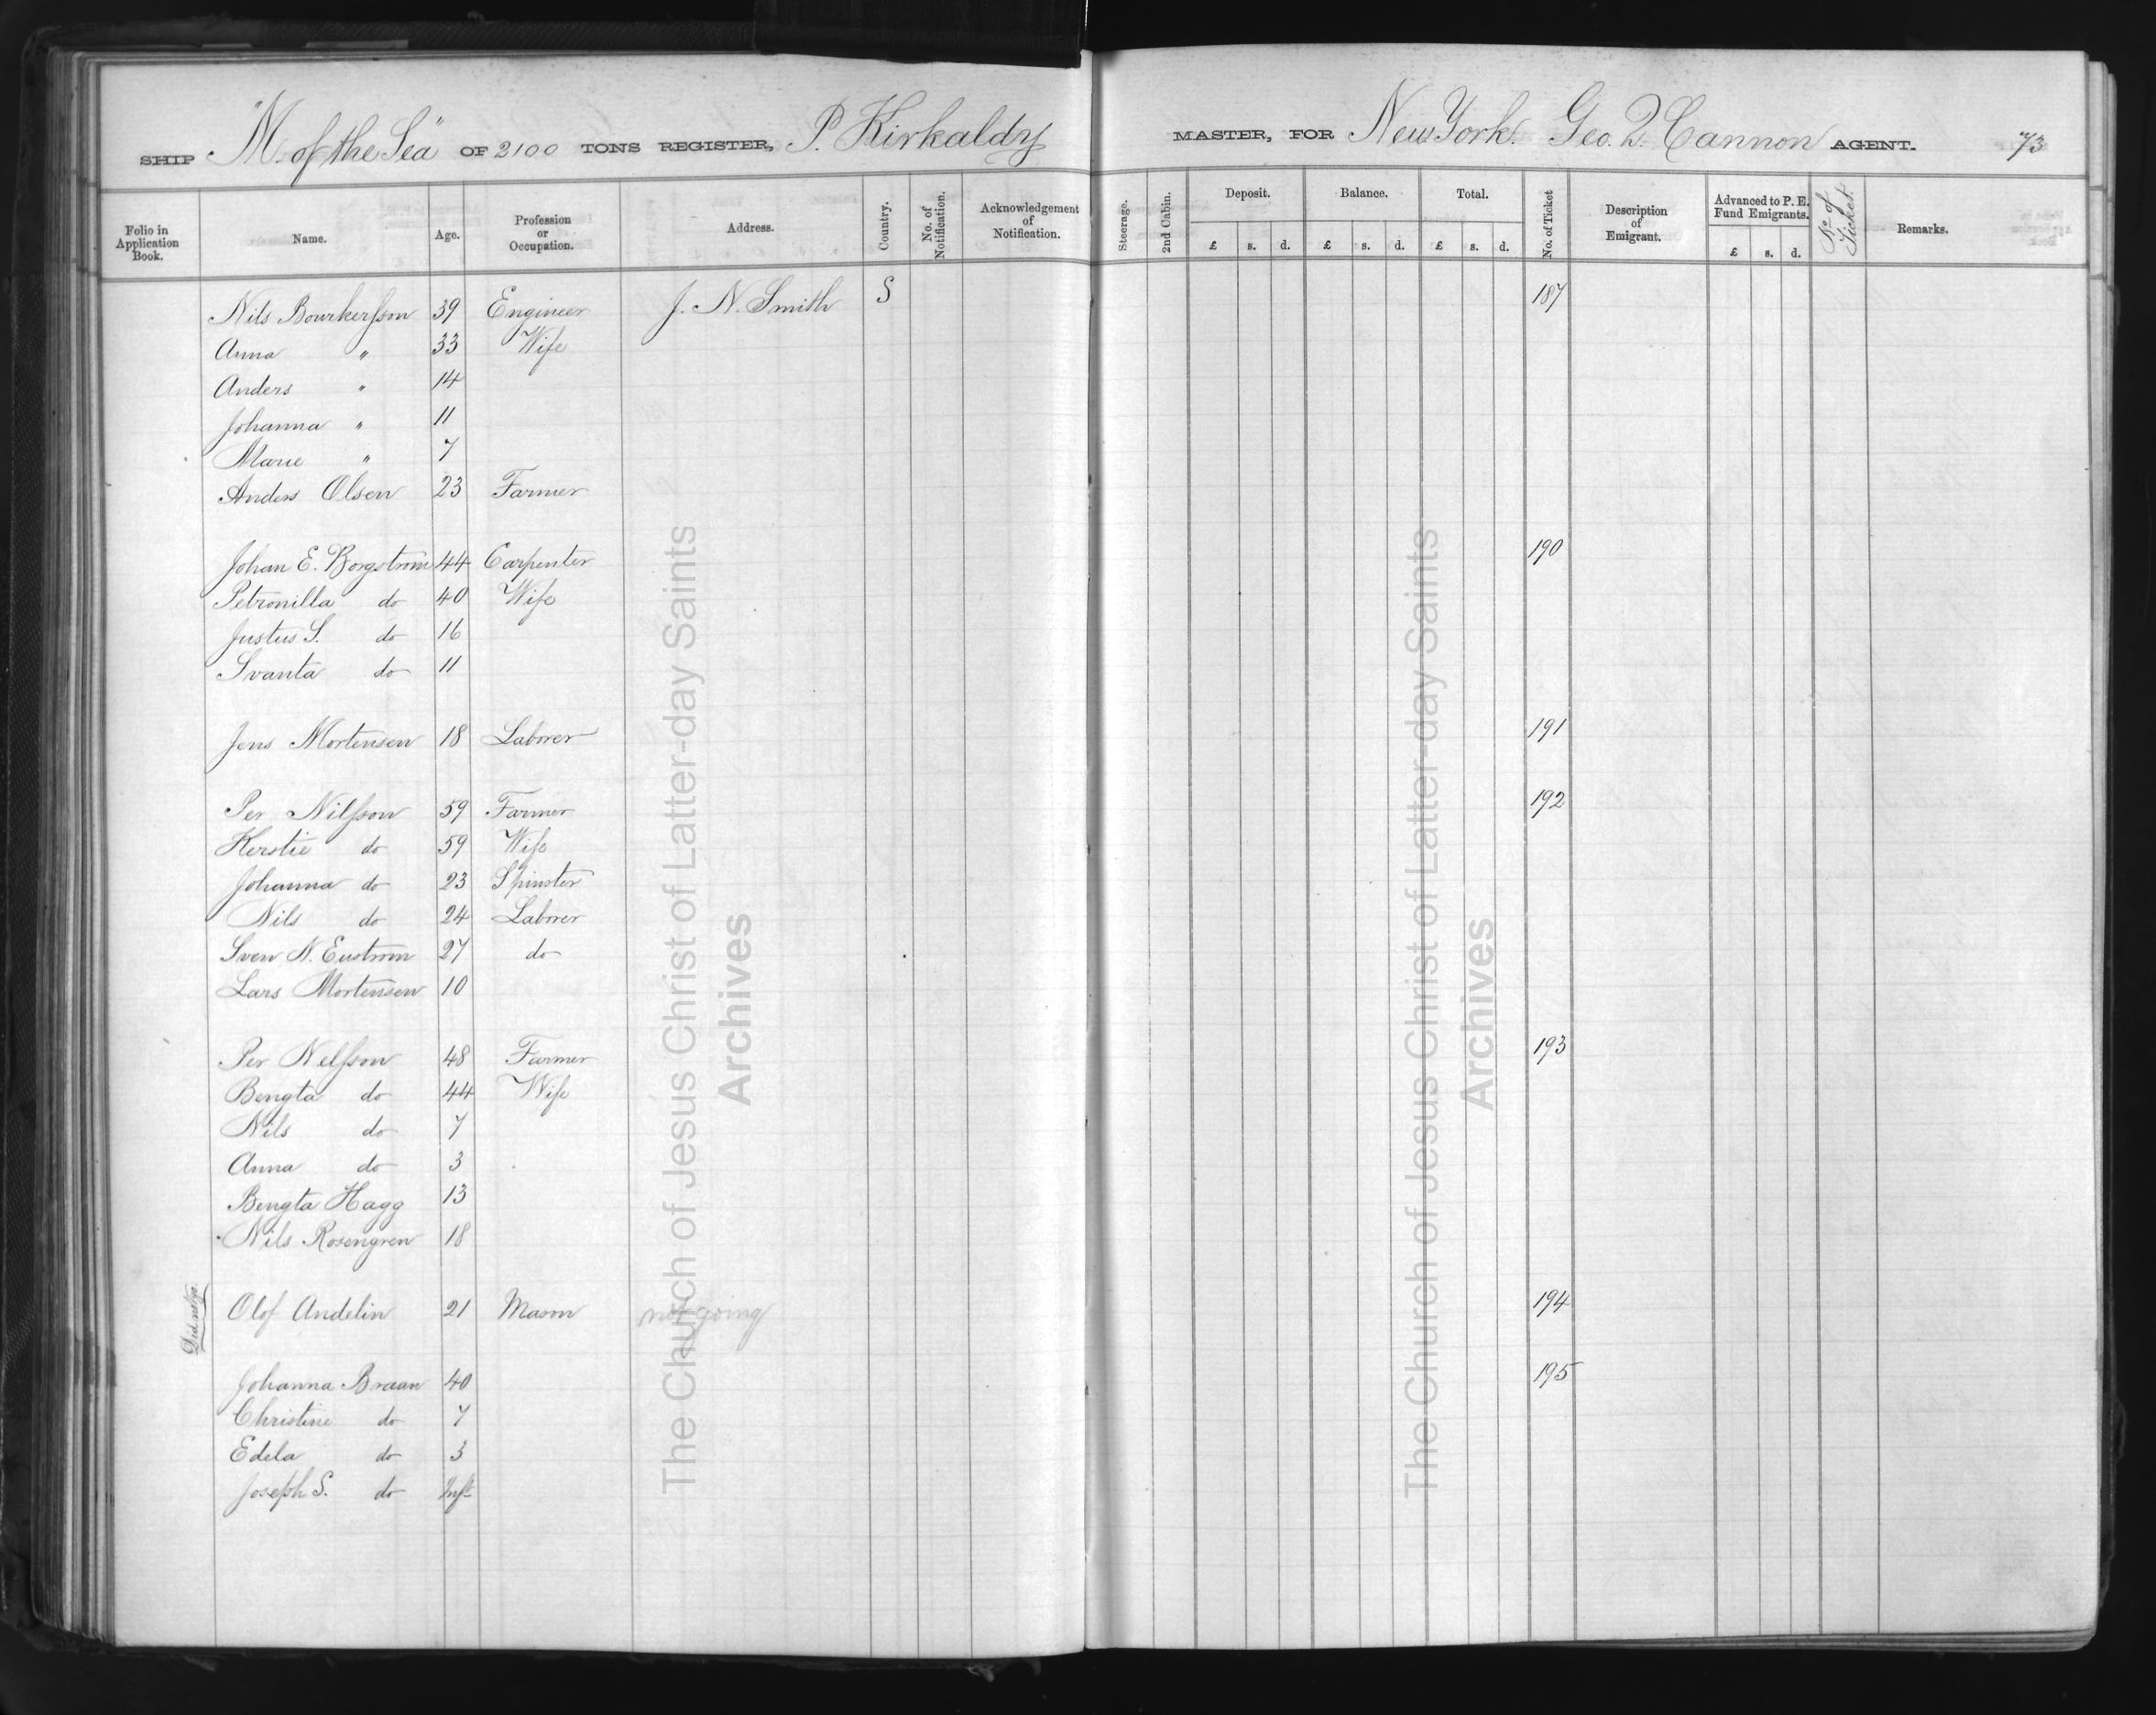 SHIP "M. of the Sea" OF 2100 TONS REGISTER, P. Kirkaldy MASTER, FOR New York. Geo. Q. Cannon AGENT. 73
Folio in Application Book. Name. Age. Profession or Occupation. Address. Country. No. of Notification. Acknowledgement of Notification. Steerage. 2nd Cabin. Deposit. £ s. d. Balance. £ s. d. Total. £ s. d. No. of Ticket Description of Emigrant. Advanced to P. E. Fund Emigrants. £ s. d. No. of Ticket. Remarks.
Nils Bourkersson 39 Engineer J. N. Smith S 187
Anna " 33 Wife
Anders " 14
Johanna " 11
Marie " 7
Anders Olsen 23 Farmer
Johan E. Borgstrom 44 Carpenter 190
Petronilla do 40 Wife
Justus S. do 16
Svanta do 11
Jens Mortensen 18 Laborer 191
Per Nilsson 59 Farmer 192
Kerstie do 59 Wife
Johanna do 23 Spinster
Nils do 24 Laborer
Sven N. Eustrom 27 do
Lars Mortensen 10
Per Nelsson 48 Farmer 193
Bengta do 44 Wife
Nils do 7
Anna do 3
Bengta Hagg 13
Nils Rosengren 18
Did not go.
Olof Andelin 21 Mason not going 194
Johanna Braan 40 195
Christine do 7
Edela do 3
Joseph S. do Inft
The Church of Jesus Christ of Latter-day Saints
Archives
The Church of Jesus Christ of Latter-day Saints
Archives